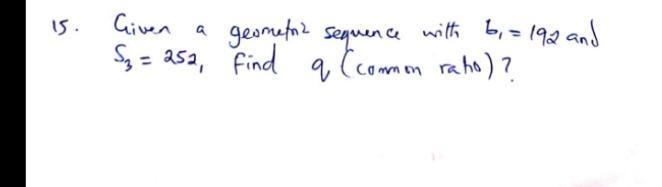 15. Given a geometric sequence with b₁ = 192 and
S₃ = 252, find q (common ratio)?